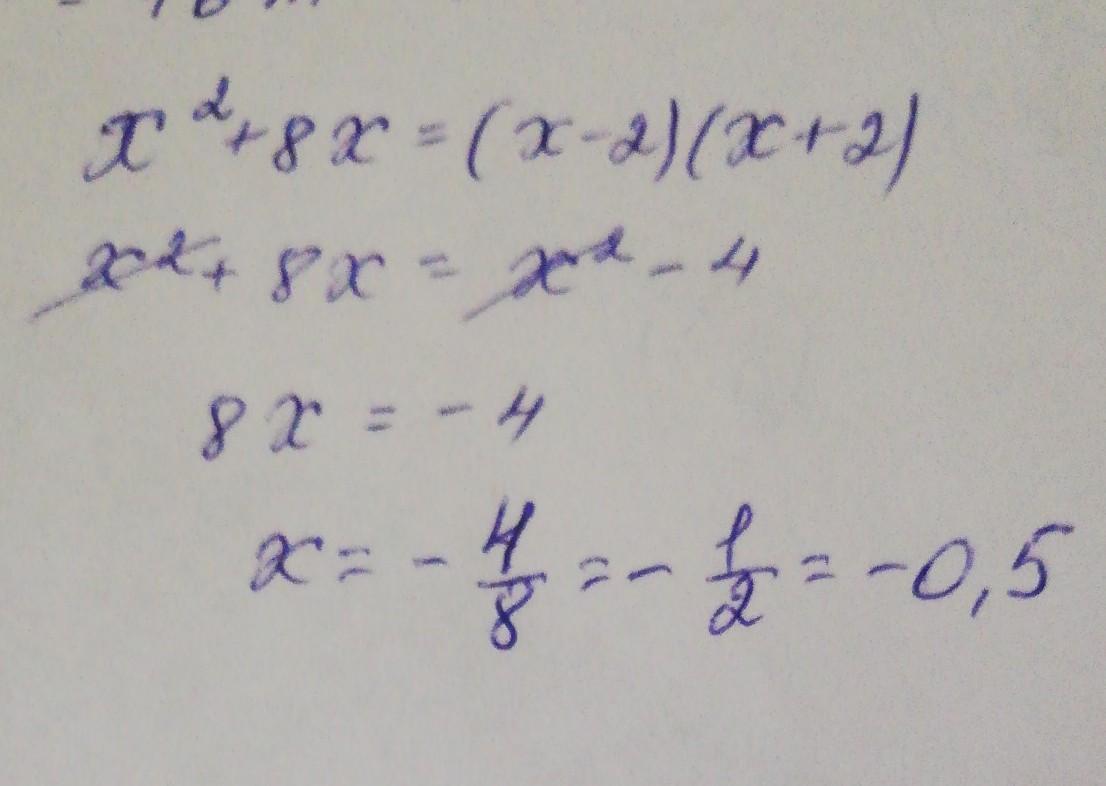 x² + 8x = (x - 2)(x + 2)
x² + 8x = x² - 4
8x = - 4
x = - 4/8 = - 1/2 = - 0,5